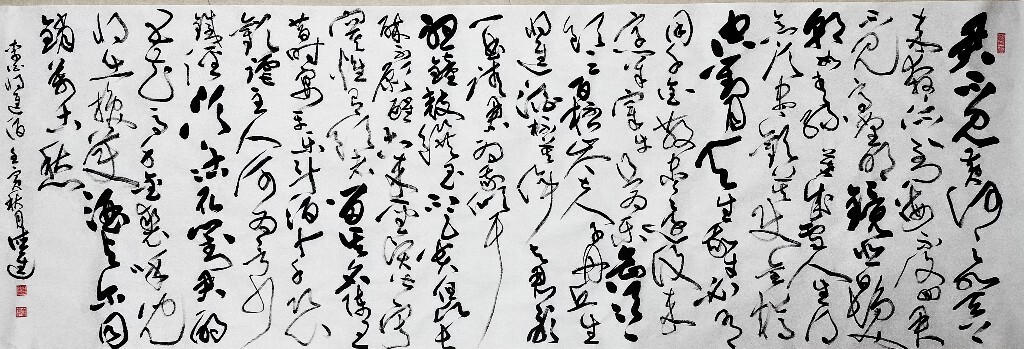 君不见黄河之水天上
来奔流到海不复回君
不见高堂明鏡悲白髮
朝如青絲暮成雪人生得
意须尽歡莫使金樽
空對月天生我材必有
用千金散尽還復来
烹羊宰牛且为乐会须一
飲三百杯岑夫子丹丘生
将進酒杯莫停与君歌
一曲請君为我倾耳
听鐘鼓饌玉不足貴但願長
醉不願醒古来聖賢皆寂
寞惟有飲者留其名陳王
昔时宴平乐斗酒十千恣
歡謔主人何为言少
錢徑须沽取對君酌
五花马千金裘呼儿
将出换美酒与尔同
銷万古愁
李白将進酒 壬寅秋月